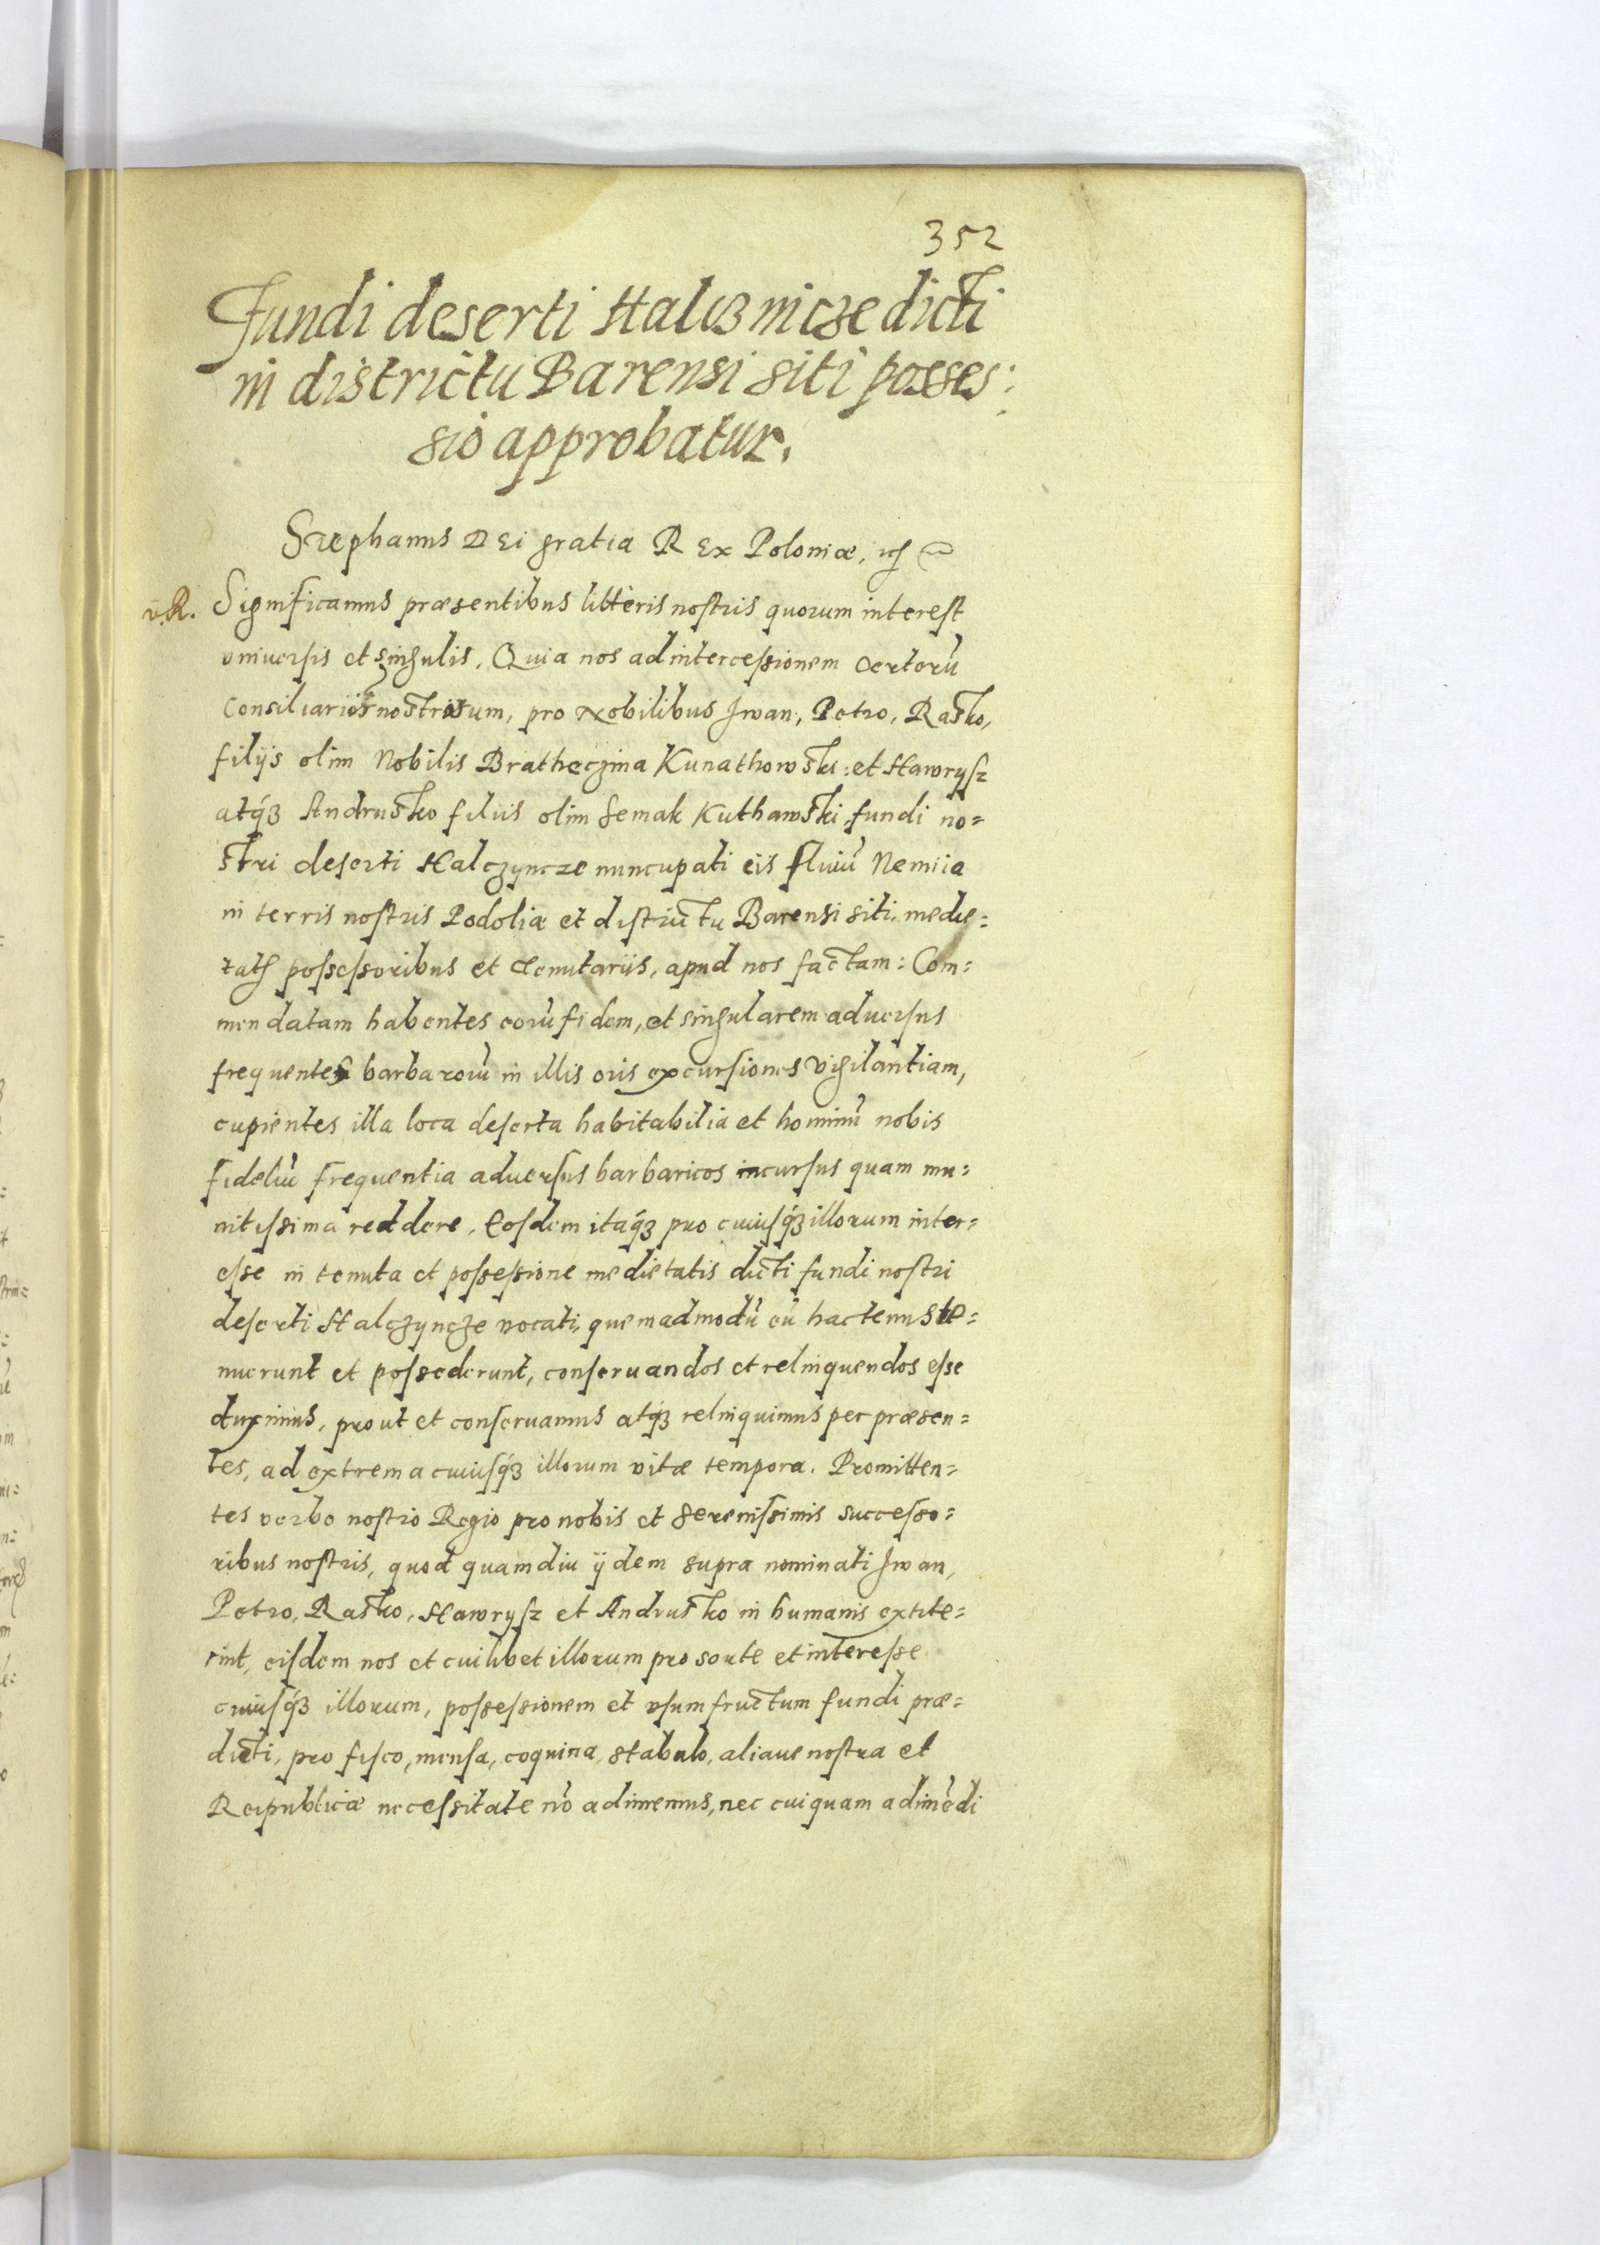 352
Fundi deserti Halcznicze dicti
in districtu Barensi siti posses:
sio approbatur.
Stephanus DEi gratia REx Poloniæ, etc
v.R. Significamus præsentibus litteris nostris quorum interest
vniuersis et singulis. Quia nos ad intercessionem certorū
Consiliariorum nostrorum, pro Nobilibus Jwan, Petro, Rasko,
filijs olim Nobilis Bratheczina Kunathowski: et Hawrysz
atq́ꝫ Andrusko filiis olim Semak Kuthawski, fundi no=
stri deserti Halczyncze nuncupati cis fluuiū Nemiia
in terris nostris Podoliæ et districtu Barensi siti, medie=
tatis possessoribus et tenutariis, apud nos factam: Com=
mendatam habentes eorū fidem, et singularem aduersus
frequentes barbarorū in illis oris excursiones vigilantiam,
cupientes illa loca deserta habitabilia et hominū nobis
fideliū frequentia aduersus barbaricos incursus quam mu=
nitissima reddere. Eosdem itaq́ꝫ pro cuiusq́ꝫ illorum inter=
esse in tenuta et possessione medietatis dicti fundi nostri
deserti Halczyncze vocati, quemadmodū eū hactenus te=
nuerunt et possederunt, conseruandos et relinquendos esse
duximus, prout et conseruamus atq́ꝫ relinquimus per præsen=
tes, ad extrema cuiusq́ꝫ illorum vitæ tempora. Promitten=
tes verbo nostro Regio pro nobis et Serenissimis successo=
ribus nostris, quod quamdiu ijdem supra nominati Jwan,
Petro, Rasko, Hawrysz et Andrusko in humanis extite=
rint, eisdem nos et cuilibet illorum pro sorte et interesse
cuiusq́ꝫ illorum, possessionem et vsumfructum fundi præ=
dicti, pro fisco, mensa, coquina, stabulo, aliaue nostra et
Reipublicæ necessitate nō adimemus, nec cuiquam adimēdi